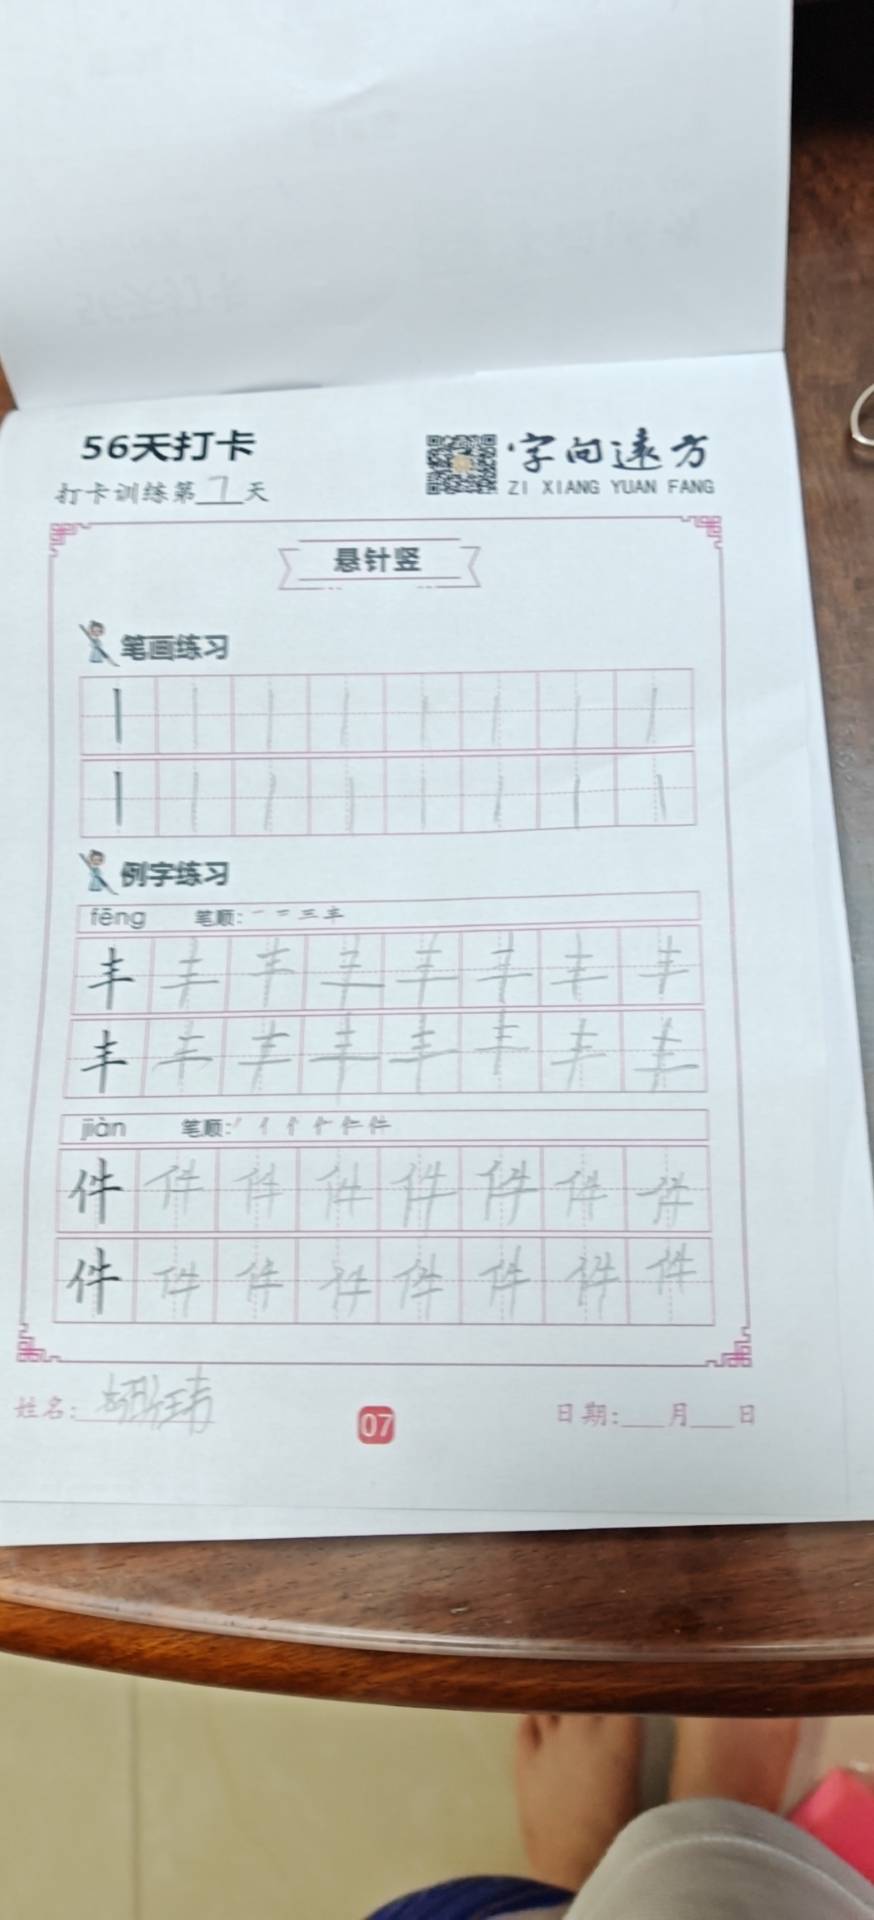 56天打卡
字向远方
打卡训练第7天
ZI XIANG YUAN FANG
悬针竖
笔画练习
丨丨丨丨丨丨丨丨
丨丨丨丨丨丨丨丨
例字练习
fēng 笔顺: 一 二 三 丰
丰丰丰丰丰丰丰丰
丰丰丰丰丰丰丰丰
jiàn 笔顺: 丿 亻 件
件件件件件件件件
件件件件件件件件
姓名:
07
日期:___月___日